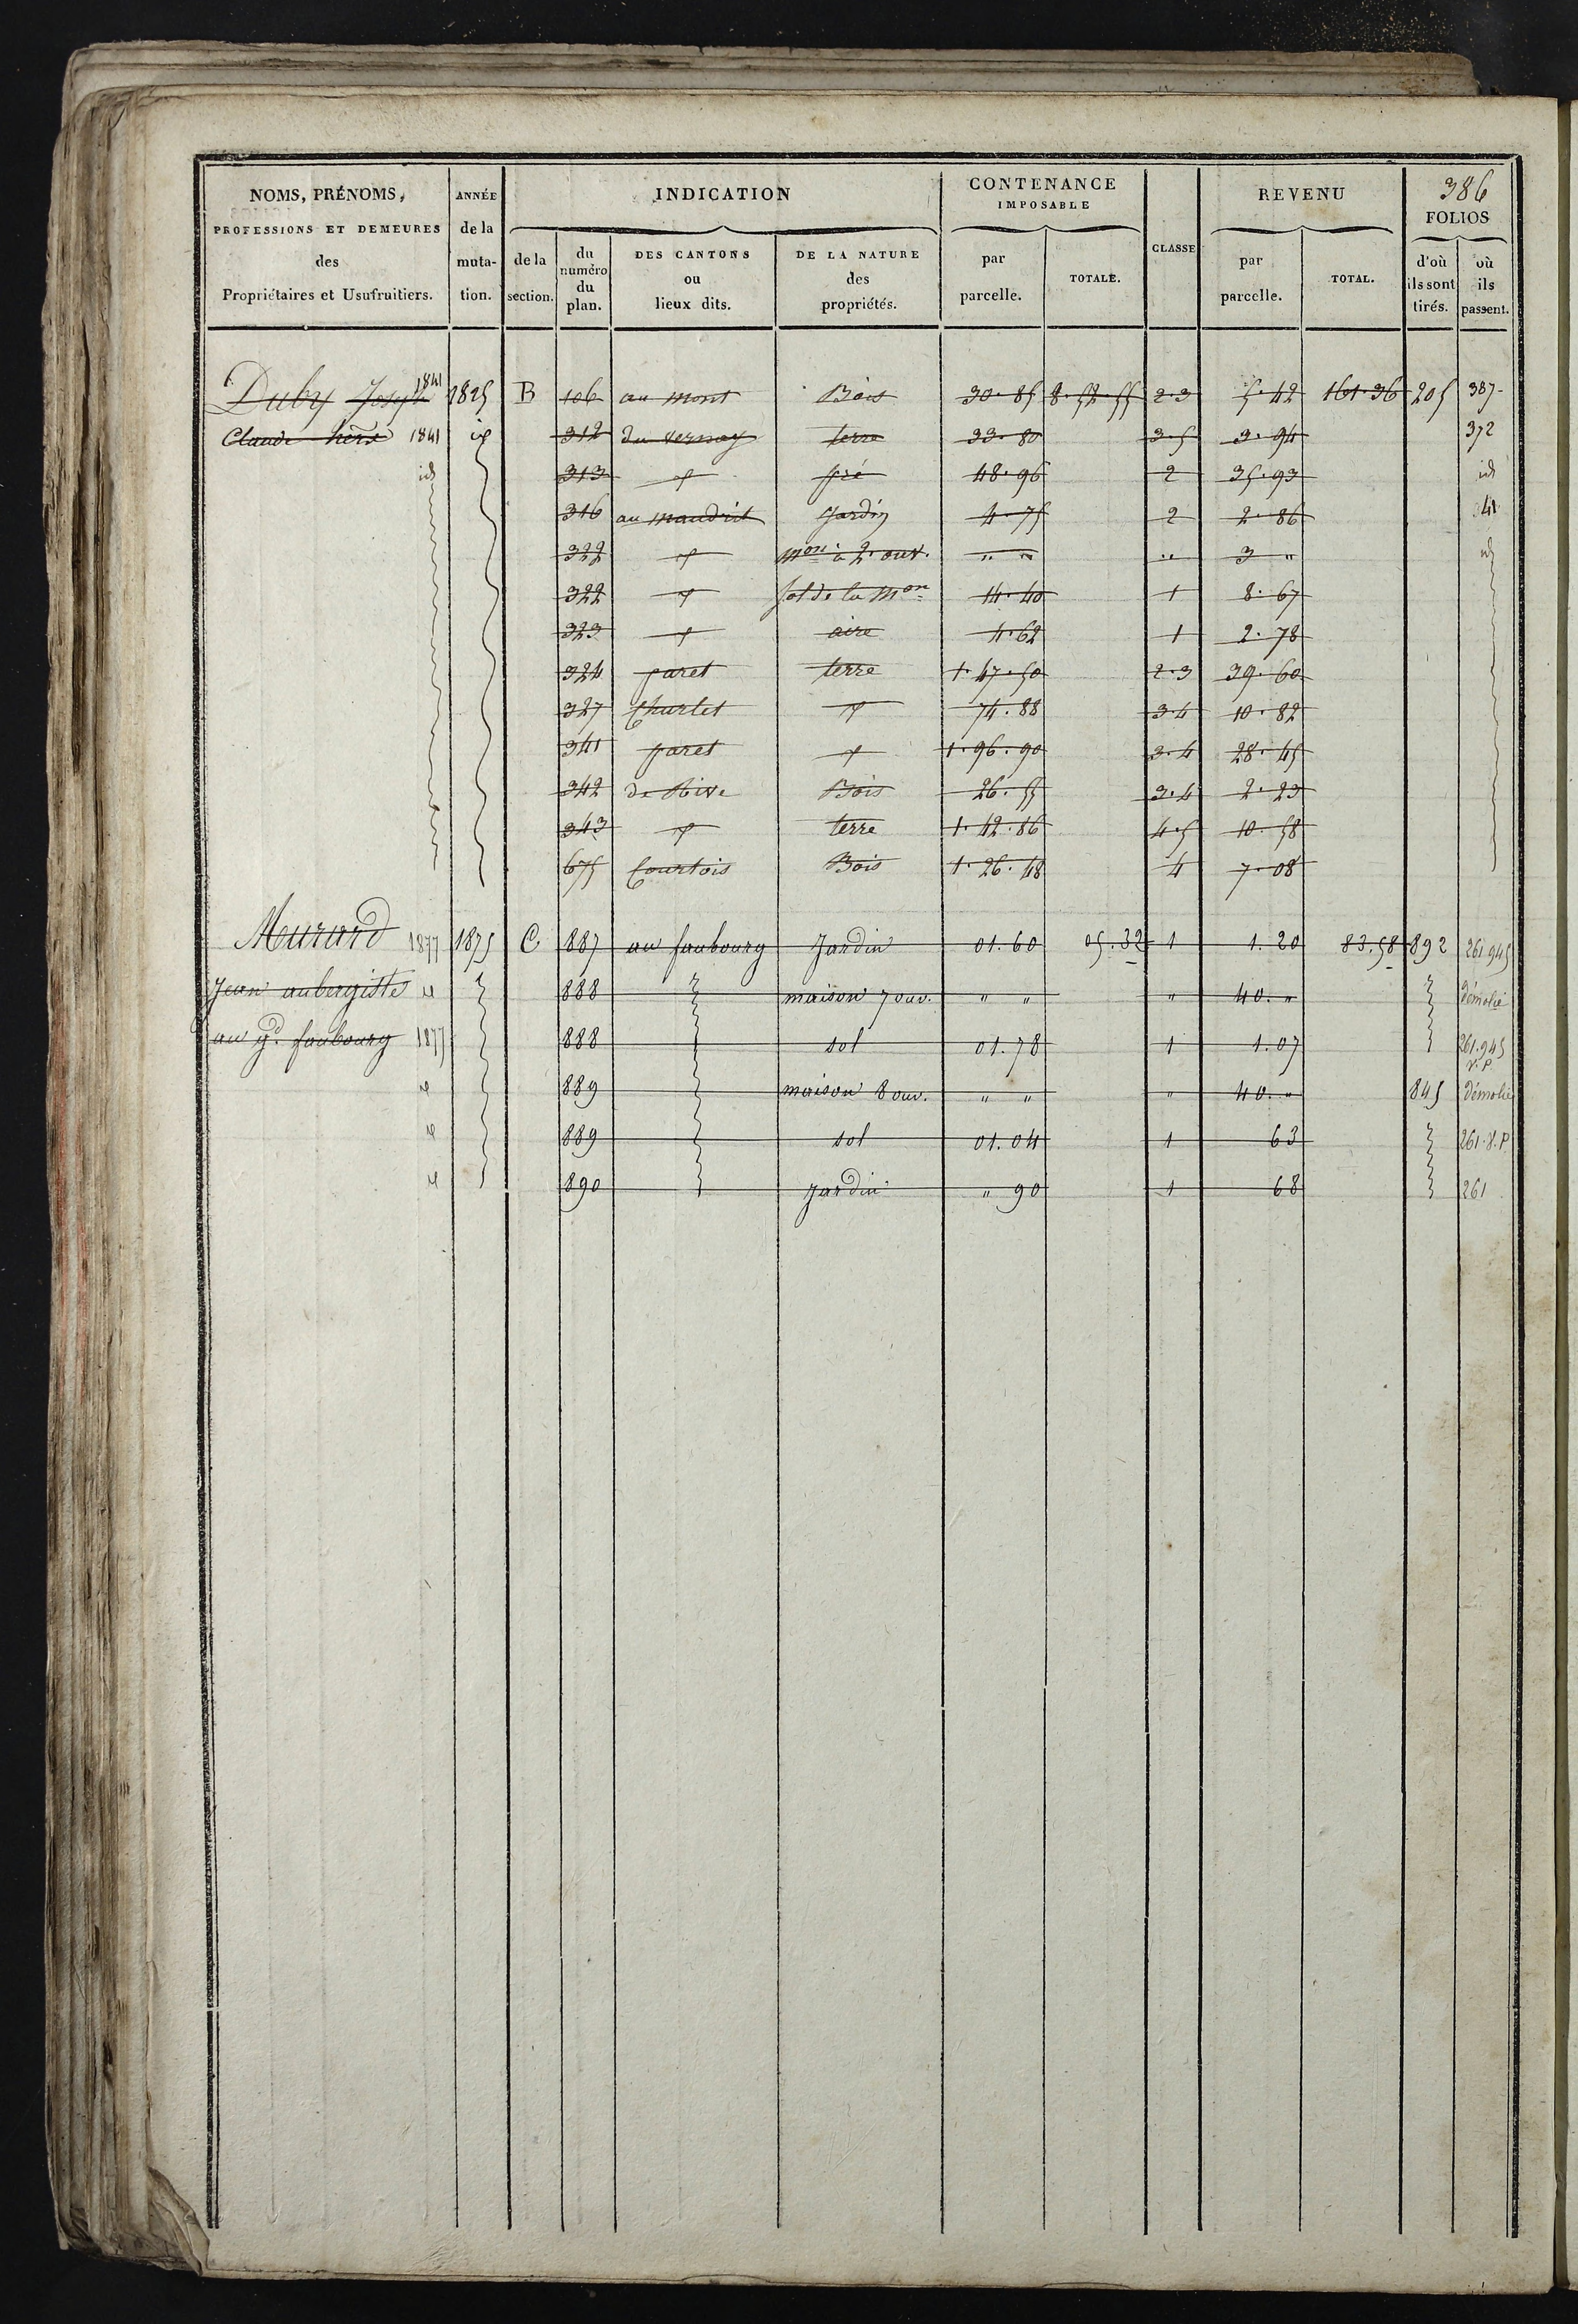 386
NOMS, PRÉNOMS, PROFESSIONS ET DEMEURES des Propriétaires et Usufruitiers.
ANNÉE de la muta-tion.
INDICATION
de la section.
du numéro du plan.
DES CANTONS ou lieux dits.
DE LA NATURE des propriétés.
CONTENANCE IMPOSABLE
par parcelle.
TOTALE.
CLASSE
REVENU
par parcelle.
TOTAL.
FOLIOS
d'où ils sont tirés.
où ils passent.
Duby Joseph 1841 1825 B 106 au mont Bois 30.85 8.52.55 2.3 5.42 161.36 205 387
Claude 1841 id 312 du vernay terre 33.80 3.5 3.94 372
id 313 id pré 48.96 2 35.93 id
316 au maudrit Jardin 4.75 2 2.86 341
322 id mon à 2 ouv. " " " 3 " id
322 id sol de la mon 14.40 1 8.67
323 id aire 4.62 1 2.78
324 paret terre 1.47.50 2.3 39.60
327 Churlet id 74.88 3.4 10.82
341 paret id 1.96.90 3.4 28.45
342 de Rive Bois 26.55 3.4 2.23
343 id terre 1.42.86 4.5 10.58
675 Courtois Bois 1.26.48 4 7.08
Murard 1877 1875 C 887 au faubourg Jardin 01.60 05.32 1 1.20 83.58 892 261.945
Jean aubergiste id 888 maison 7 ouv. " " " 40. " Démolie
au gd. faubourg 1877 888 sol 01.78 1 1.07 261.945 v.P
id 889 maison 8 ouv. " " " 40. " 845 Démolie
id 889 sol 01.04 1 63 261.v.P
id 890 Jardin " 90 1 68 261